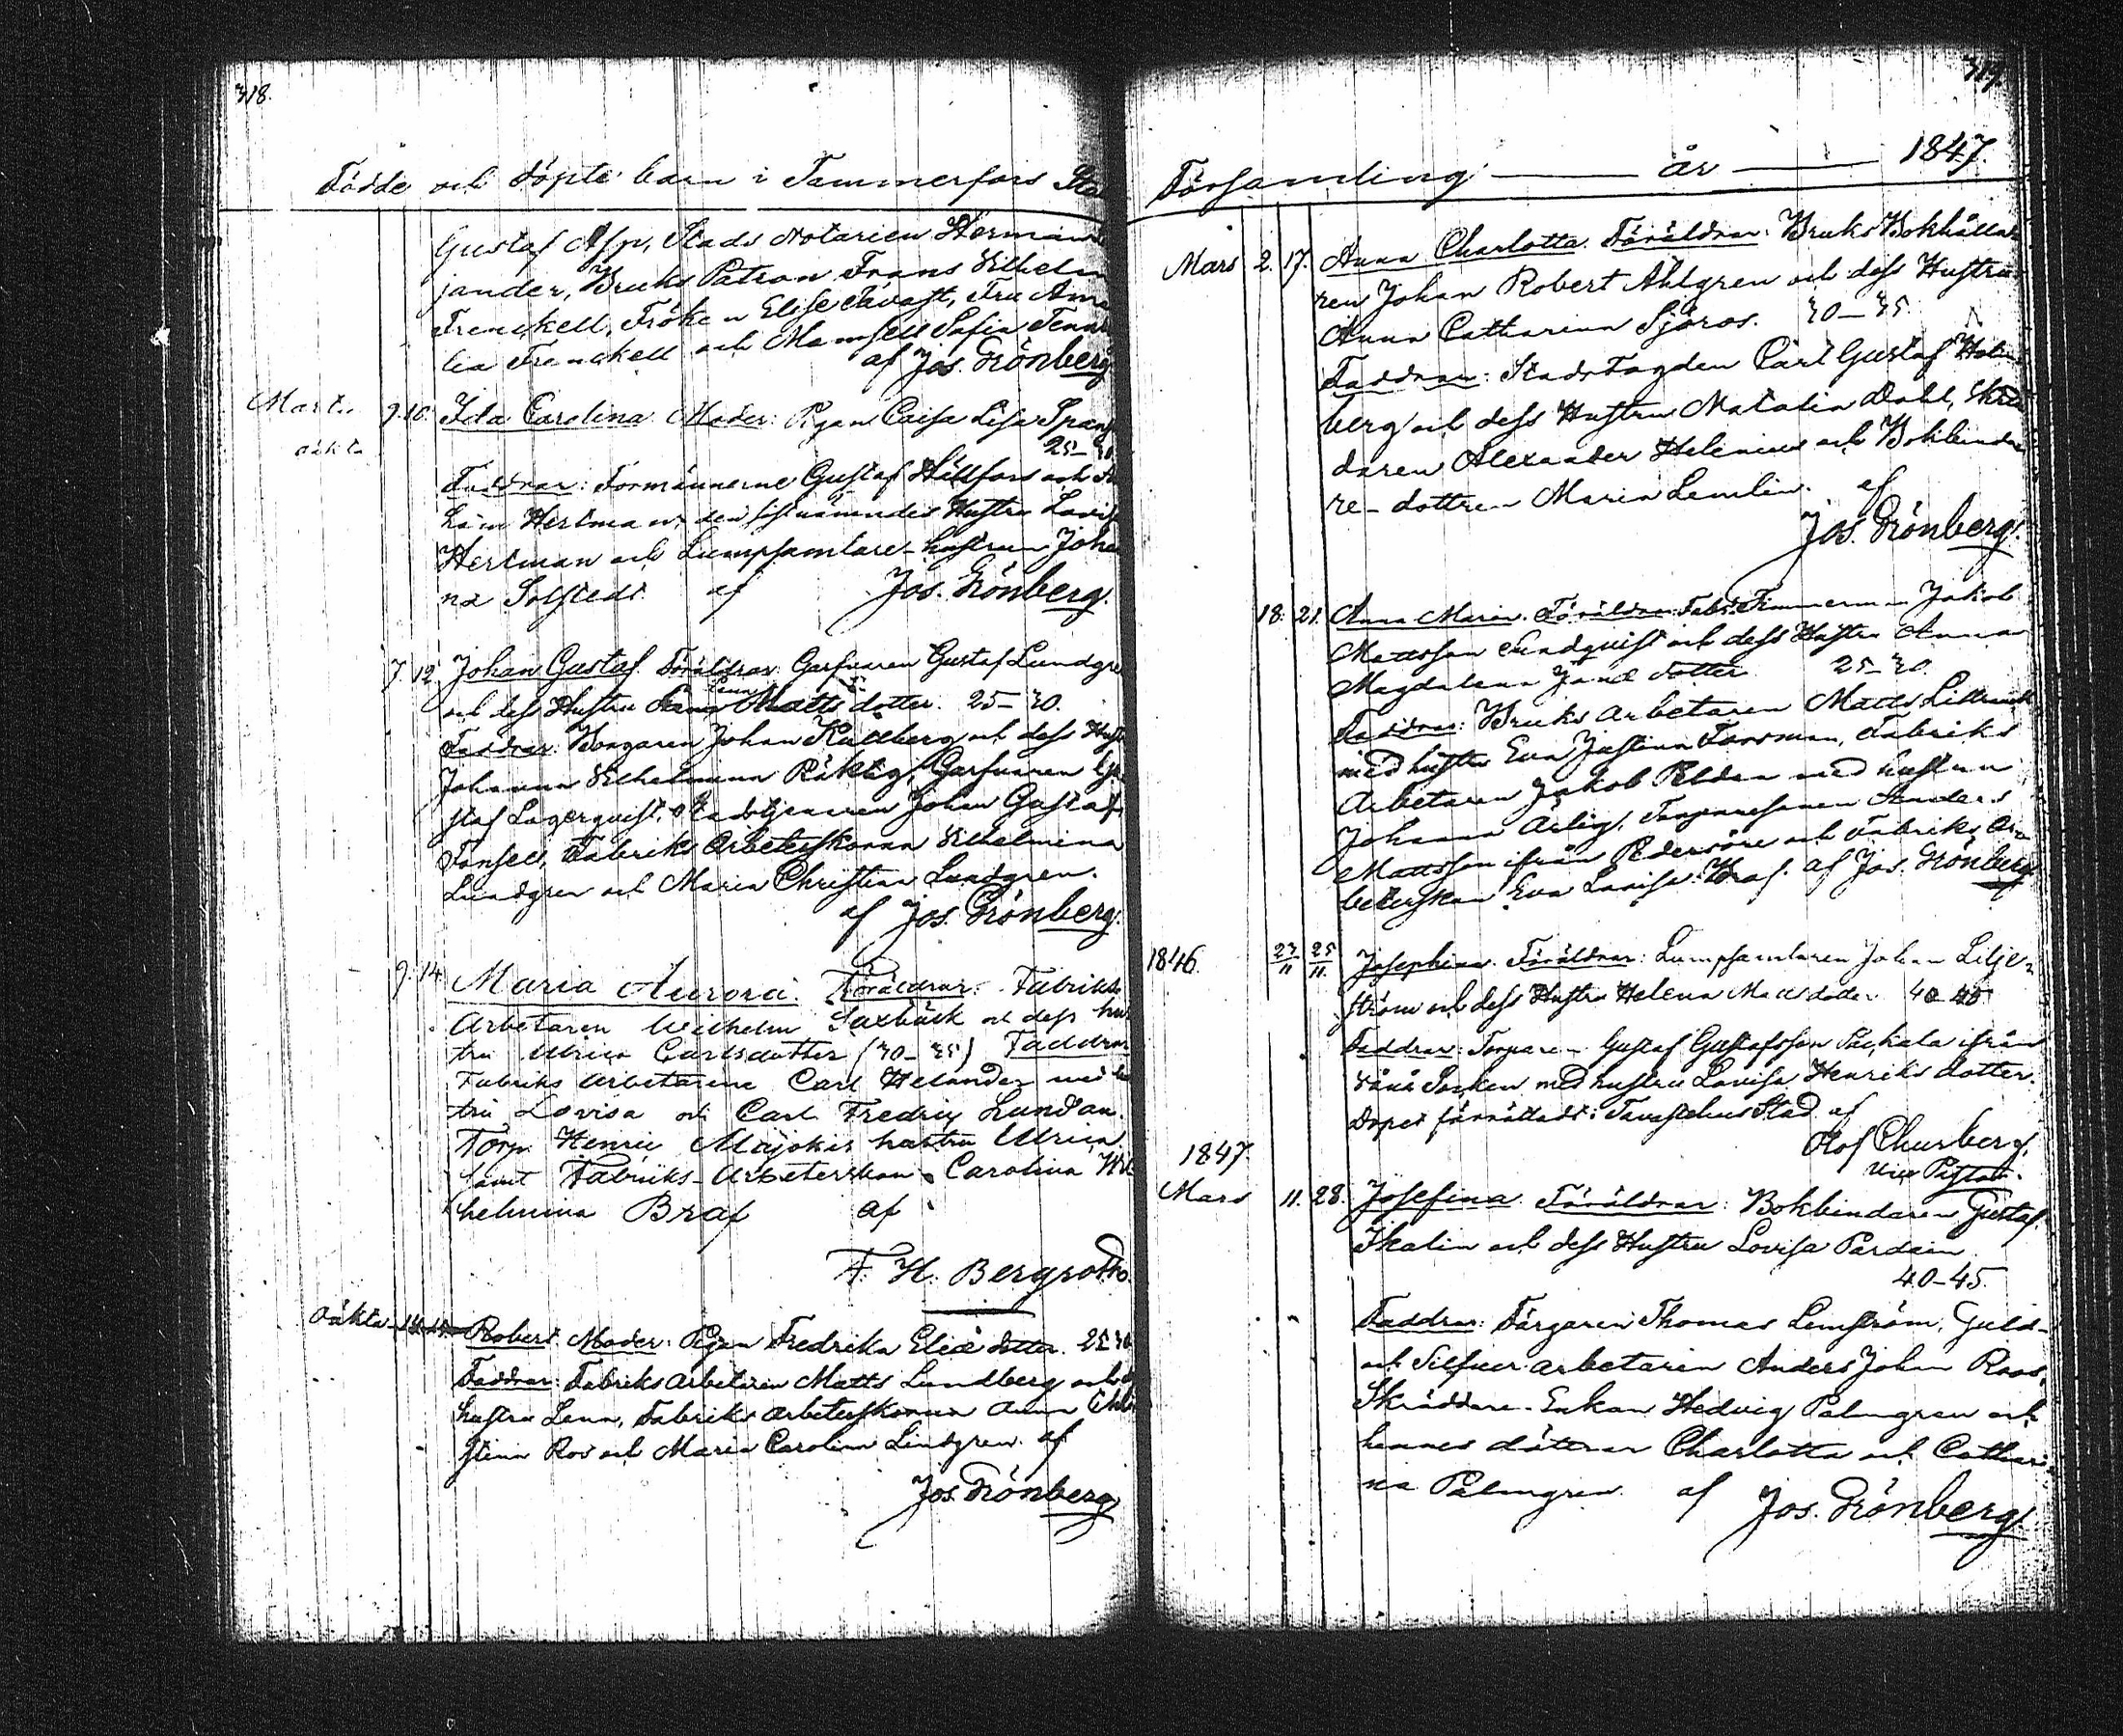 318.
Födde och döpte barn i Tammerfors Sta
Gustaf Asp, Stads Notarien Herman
jander, Bruks Patron Frans Vilhelm
Frenckell, Fröken Elise Tavast, Fru Ama
lia Frenckell och Mamsell Sofia
af Jos. Grönberg
Martii 9. 10. Ida Carolina. Moder: Pigan Caisa Lisa Spang
oäkta
25–30
Faddrar: Formännerne Gustaf Hällfors och
Hertman, den sistnämndes Hustru Lovisa
Hertman och Lumpsamlare-hustrun Johan
na Solstedt af Jos. Grönberg.
7. 12. Johan Gustaf. Föräldrar: Garfvaren Gustaf Lundgre
och dess Hustru Lena Mattsdotter. 25–30.
Faddrar: Borgaren Johan Kullberg och dess Hust
Johanna Vilhelmina Räktig, Garfvaren Gu
staf Lagerqvist, Johan Gustaf
Tonsell, Fabriks Arbeterskorna Vilhelmina
Lundgren och Maria Christina Lundgren.
af Jos. Grönberg.
9. 14. Maria Aurora. Föräldrar: Fabriks
Arbetaren Wilhelm Saxbäck och dess hus
tru Ulrica Carlsdotter (30–35) Faddrar
Fabriks Arbetarene Carl Helander med hus
tru Lovisa och Carl Fredrix Lundan.
Torp. Henric Majokis hustru Ulrica
samt Fabriks-Arbeterskan Carolina Wil
helmina Braf af
F. H. Bergroth.
oäkta Robert. Moder: Pigan Fredrika Eliædotter. 25–30
Faddrar: Fabriks Arbetaren Matts Lundberg och d
hustru Lena, Fabriks arbeterskorna Anna Chri
stina Ros och Maria Carolina Lindgren. af
Jos. Grönberg
319.
Församling ——— år ——— 1847.
Mars 2. 17. Anna Charlotta. Föräldrar: Bruks Bokhålla
ren Johan Robert Ahlgren och dess Hustru
Anna Catharina Sjöros. 30–35.
Faddrar: Stadsfogden Carl Gustaf Holm
berg och dess Hustru Natalia Dahl, Skräd
daren Alexander Helenius och Bokbinda
re-dottren Maria Lemlin. af
Jos. Grönberg.
18. 21. Anna Maria. Föräldrar: Fabr. Timmerman Jakob
Mattsson Sundqvist och dess Hustru Anna
Magdalena dotter 25–30.
Faddrar: Bruks Arbetaren Matts
med hustru Eva Justina Forsman, Fabriks
Arbetaren Jakob Peldan med hustrun
Johanna Ärlig, Torparesonen Anders
Mattsson ifrån Pedersöre och Fabriks Ar
beterskan Eva Lovisa Braf. af Jos. Grönberg
1846. 23/11 25/11. Josephina. Föräldrar: Lumpsamlaren Johan Lilje
ström och dess Hustru Helena Mattsdotter 40–45
Faddrar: Torparen Gustaf Gustafsson ifrån
Vånå Socken med hustru Lovisa Henriksdotter.
Dopet förrättadt i Tavastehus Stad af
Olof Churberg,
Vice Pastor.
1847.
Mars 11. 28. Josefina. Föräldrar: Bokbindaren Gustaf
Thalin och dess Hustru Lovisa
40–45.
Faddrar: Färgaren Thomas Lemström, Guld-
och Silfver-arbetaren Anders Johan Roos,
Skräddare-Enkan Hedvig Palmgren och
hennes döttrar Charlotta och Cathari
na Palmgren. af Jos. Grönberg